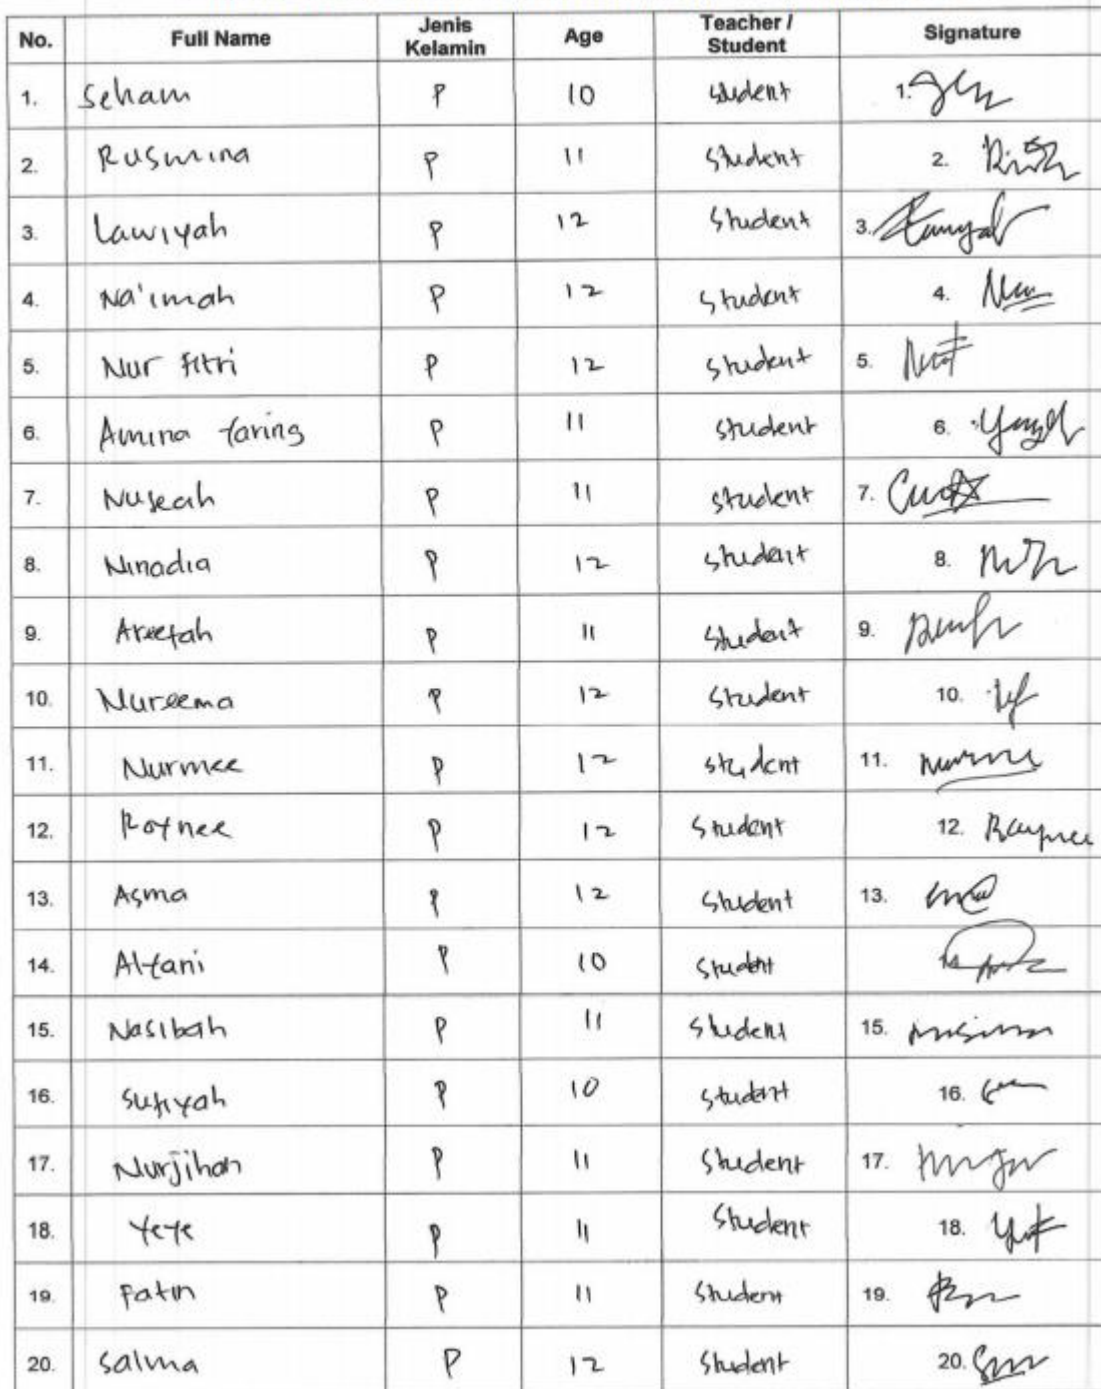 No. Full Name Jenis Kelamin Age Teacher / Student Signature
1. Seham P 10 student 1.
2. Rusmina P 11 Student 2.
3. Lawiyah P 12 Student 3.
4. Na'imah P 12 student 4.
5. Nur Fitri P 12 student 5.
6. Amina Yaring P 11 student 6.
7. Nuseah P 11 student 7.
8. Ninadia P 12 student 8.
9. Areefah P 11 Student 9.
10. Nureema P 12 Student 10.
11. Nurmee P 12 student 11.
12. P 12 Student 12.
13. Asma P 12 Student 13.
14. P 10 Student
15. Nasibah P 11 Student 15.
16. Sufiyah P 10 student 16.
17. Nurjihan P 11 Student 17.
18. Yeye P 11 Student 18.
19. Fatin P 11 Student 19.
20. Salma P 12 Student 20.